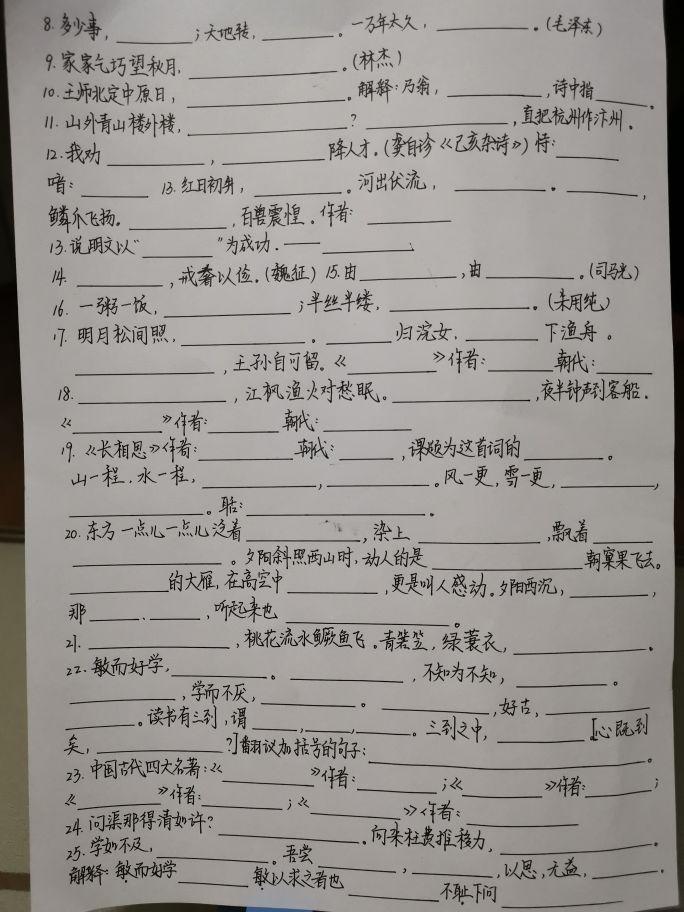 8. 多少事,______;天地转,______。一万年太久,______。(毛泽东)
9. 家家乞巧望秋月,____________。(林杰)
10. 王师北定中原日,____________。解释:乃翁,________,诗中指____。
11. 山外青山楼外楼,____________?____________,直把杭州作汴州。
12. 我劝________,________降人才。(龚自珍《己亥杂诗》)恃:______
喑:______ 13. 红日初升,________。河出伏流,________。______,
鳞爪飞扬。________,百兽震惶。作者:______
13. 说明文以“______”为成功.——________
14. ________,戒奢以俭。(魏征)15. 由________,由________。(司马光)
16. 一粥一饭,____________;半丝半缕,____________。(朱用纯)
17. 明月松间照,____________。______归浣女,______下渔舟。
____________,王孙自可留。《________》作者:______朝代:______
18. ____________,江枫渔火对愁眠。____________,夜半钟声到客船。
《________》作者:______朝代:______
19.《长相思》作者:________朝代:____,课题为这首词的______。
山一程,水一程,________,________。风一更,雪一更,________,
________。聒:____________。
20. 东方一点儿一点儿泛着________,染上________,飘着______
____________。夕阳斜照西山时,动人的是____________朝窠巢飞去。
________的大雁,在高空中________,更是叫人感动。夕阳西沉,______,
那____、____,听起来也____________。
21. ____________,桃花流水鳜鱼飞。青箬笠,绿蓑衣,____________。
22. 敏而好学,________。________,不知为不知,________。
________,学而不厌,________。________,好古,________
______。读书有三到,谓____,____,____。三到之中,______[心既到
矣,__________?]翻议加括号的句子:____________________。
23. 中国古代四大名著:《________》作者:______;《______》作者:______;
《______》作者:______;《________》作者:________
24. 问渠那得清如许?____________。向来枉费推移力,____________。
25. 学如不及,________。吾尝______,______,以思,无益,______。
解释:敏而好学______ 敏以求之者也________不耻下问________